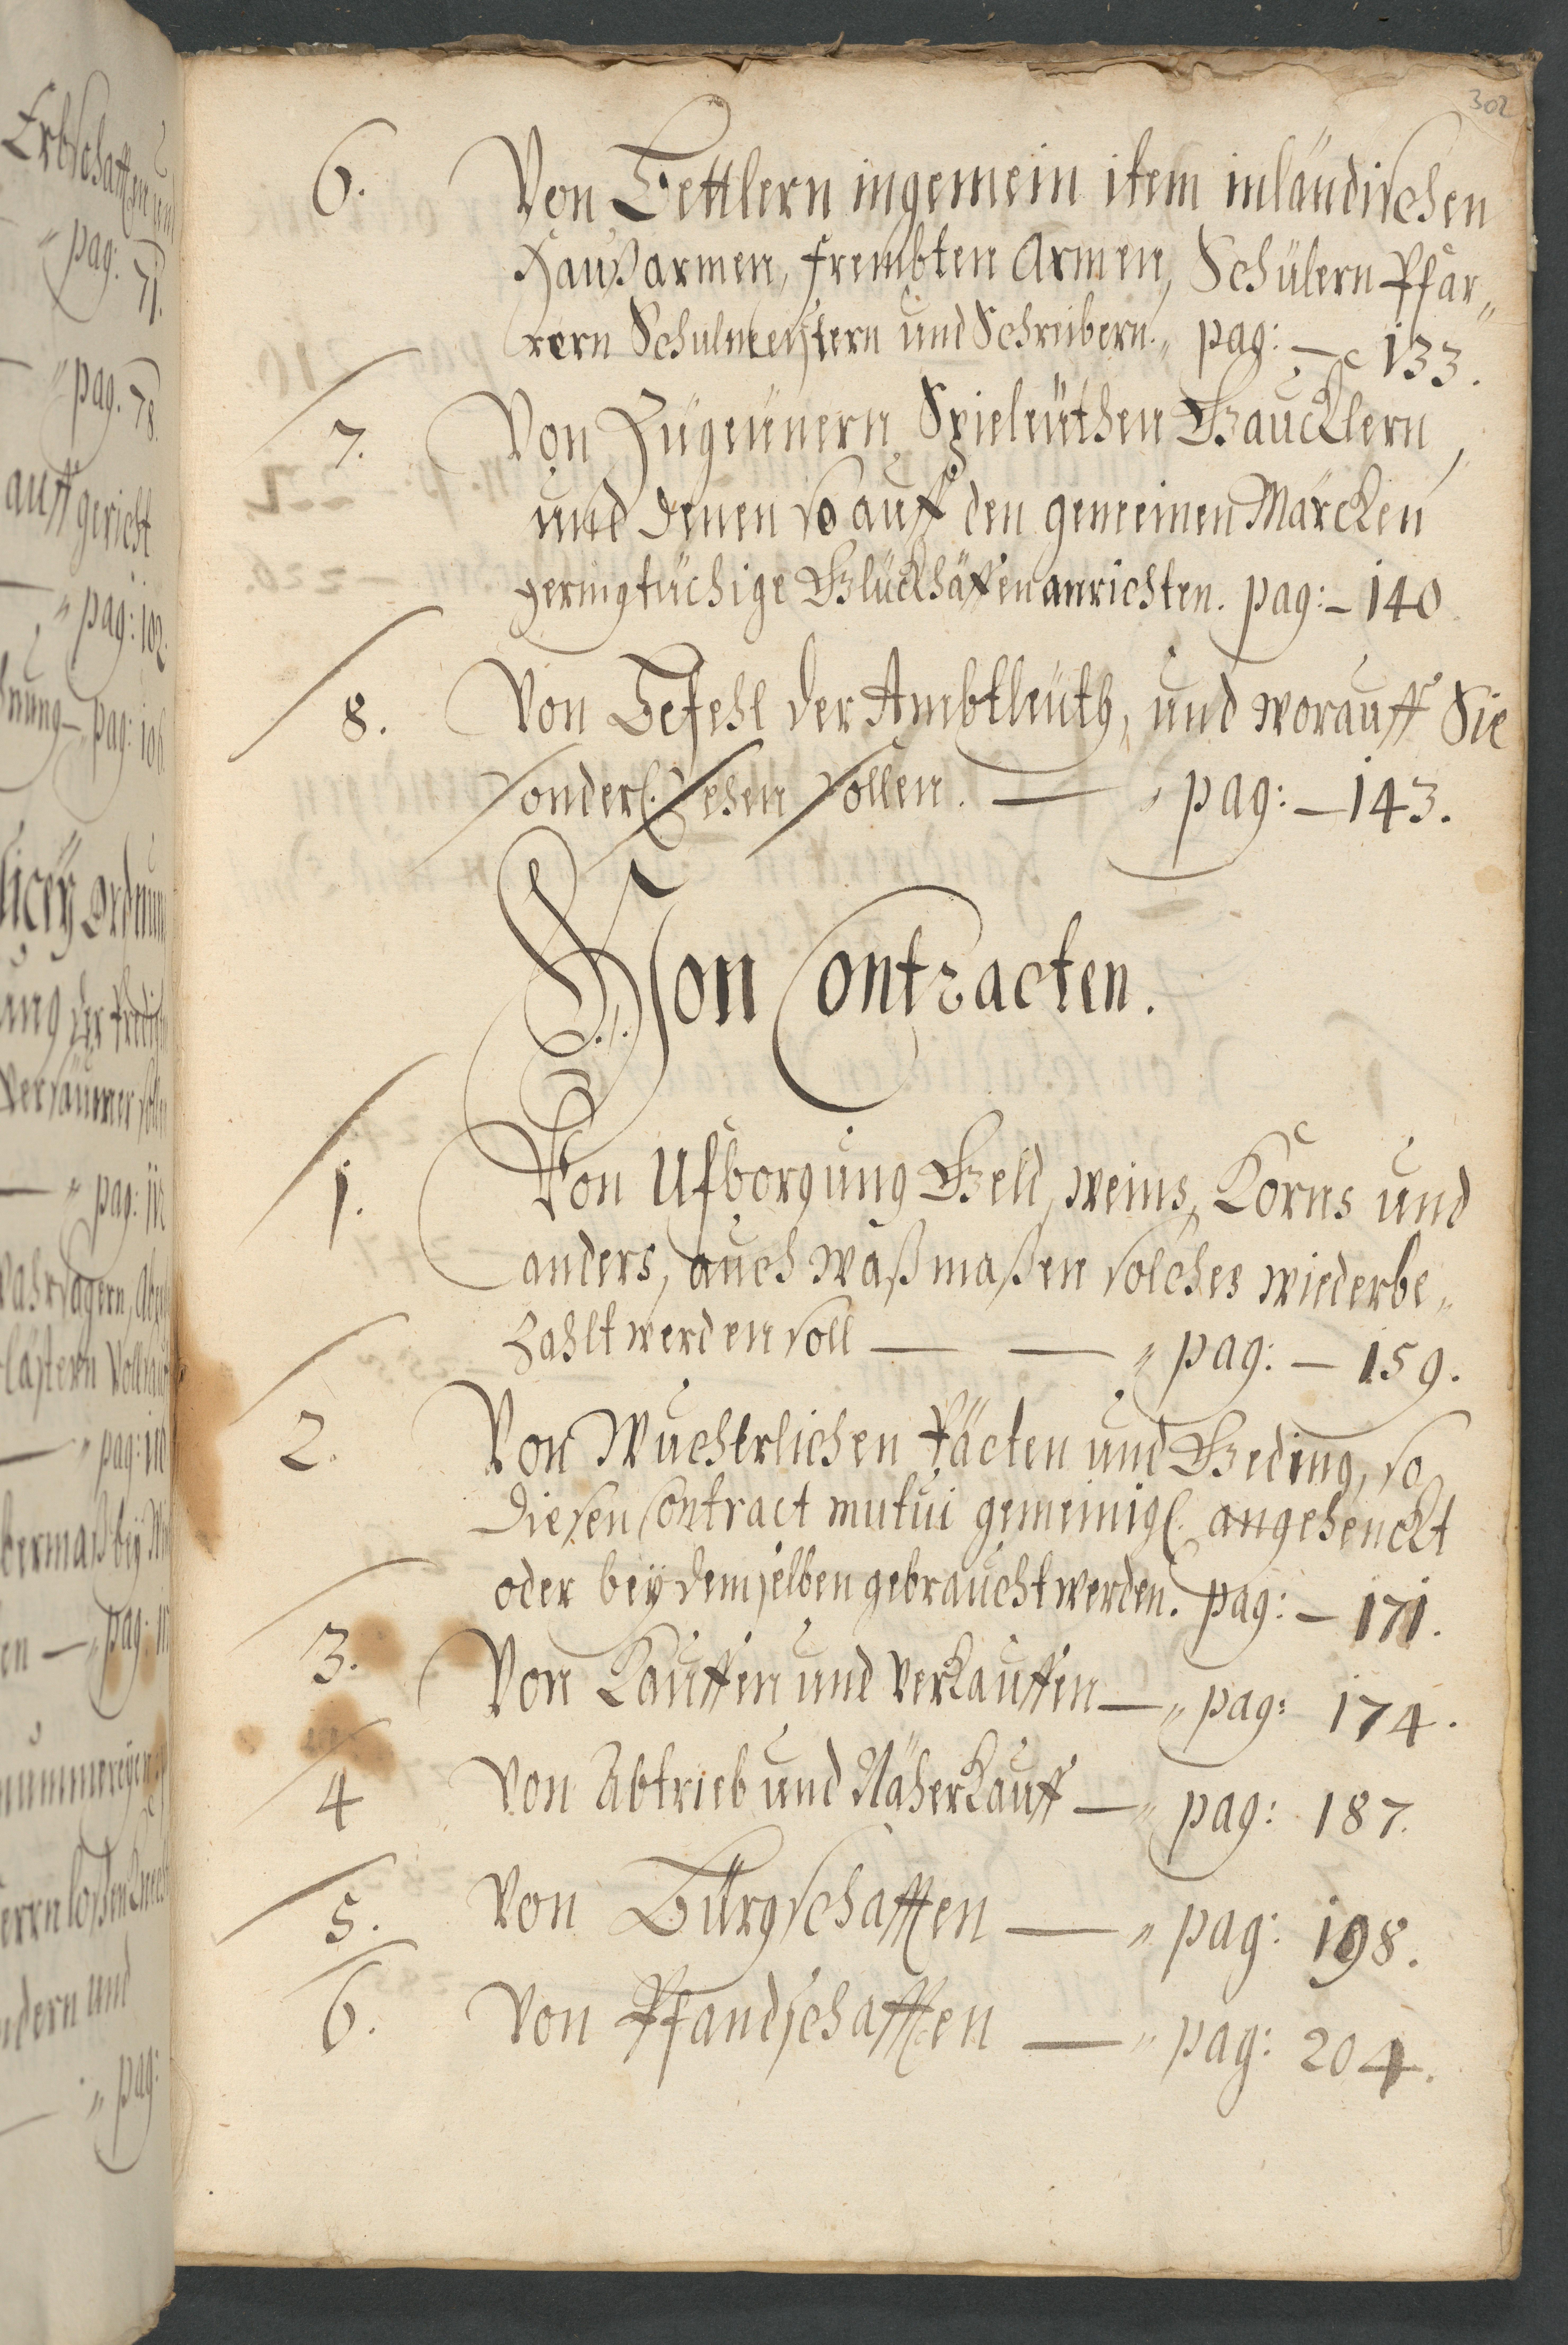 302
6. Von Bettlern ingemein item inländischen
Haußarmen, frembten Armen, Schülern Pfar„
rern Schulmeistern und Schreibern. „ pag: — 133.
7. Von Zügeünern Spieleüthen Gaucklern,
und denen so auff den gemeinen Märcken
geringtüchige Glückhäffen anrichten. pag: – 140
8. Von Befehl der Ambtleüth, und worauff Sie
sonderl. sehen sollen. — „ pag: – 143.
Von Contracten.
1. Von Ufborgung Geld, weins, Korns und
anders, auch waß maßen solches wiederbe„
zahlt werden soll — — „ pag: – 159.
2. Von Wucherlichen Päcten und Geding, so
diesen Contract mutui gemeinigl. angehenckt
oder bey demselben gebraucht werden. pag: – 171.
3. Von Kauffen und Verkauffen — „ pag: 174.
4 Von Abtrieb und Näherkauff — „ pag: 187.
5. Von Bürgschafften — „ pag: 198.
6. Von Pfandschafften — „ pag: 204.
Erbschafften und
„ pag: 71.
„ pag. 78.
auff gericht
„ pag: 102.
pag:
„ pag: